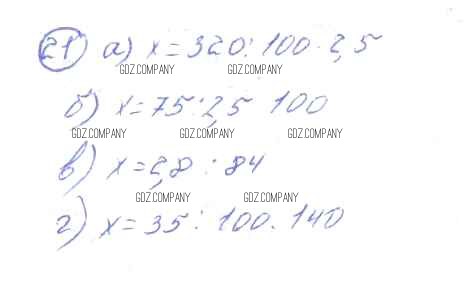 21) а) x = 320 : 100 · 2,5
GDZ.COMPANY GDZ.COMPANY
б) x = 75 : 2,5 100
GDZ.COMPANY GDZ.COMPANY GDZ.COMPANY
в) x = 2,8 : 84
GDZ.COMPANY GDZ.COMPANY
г) x = 35 : 100 . 140